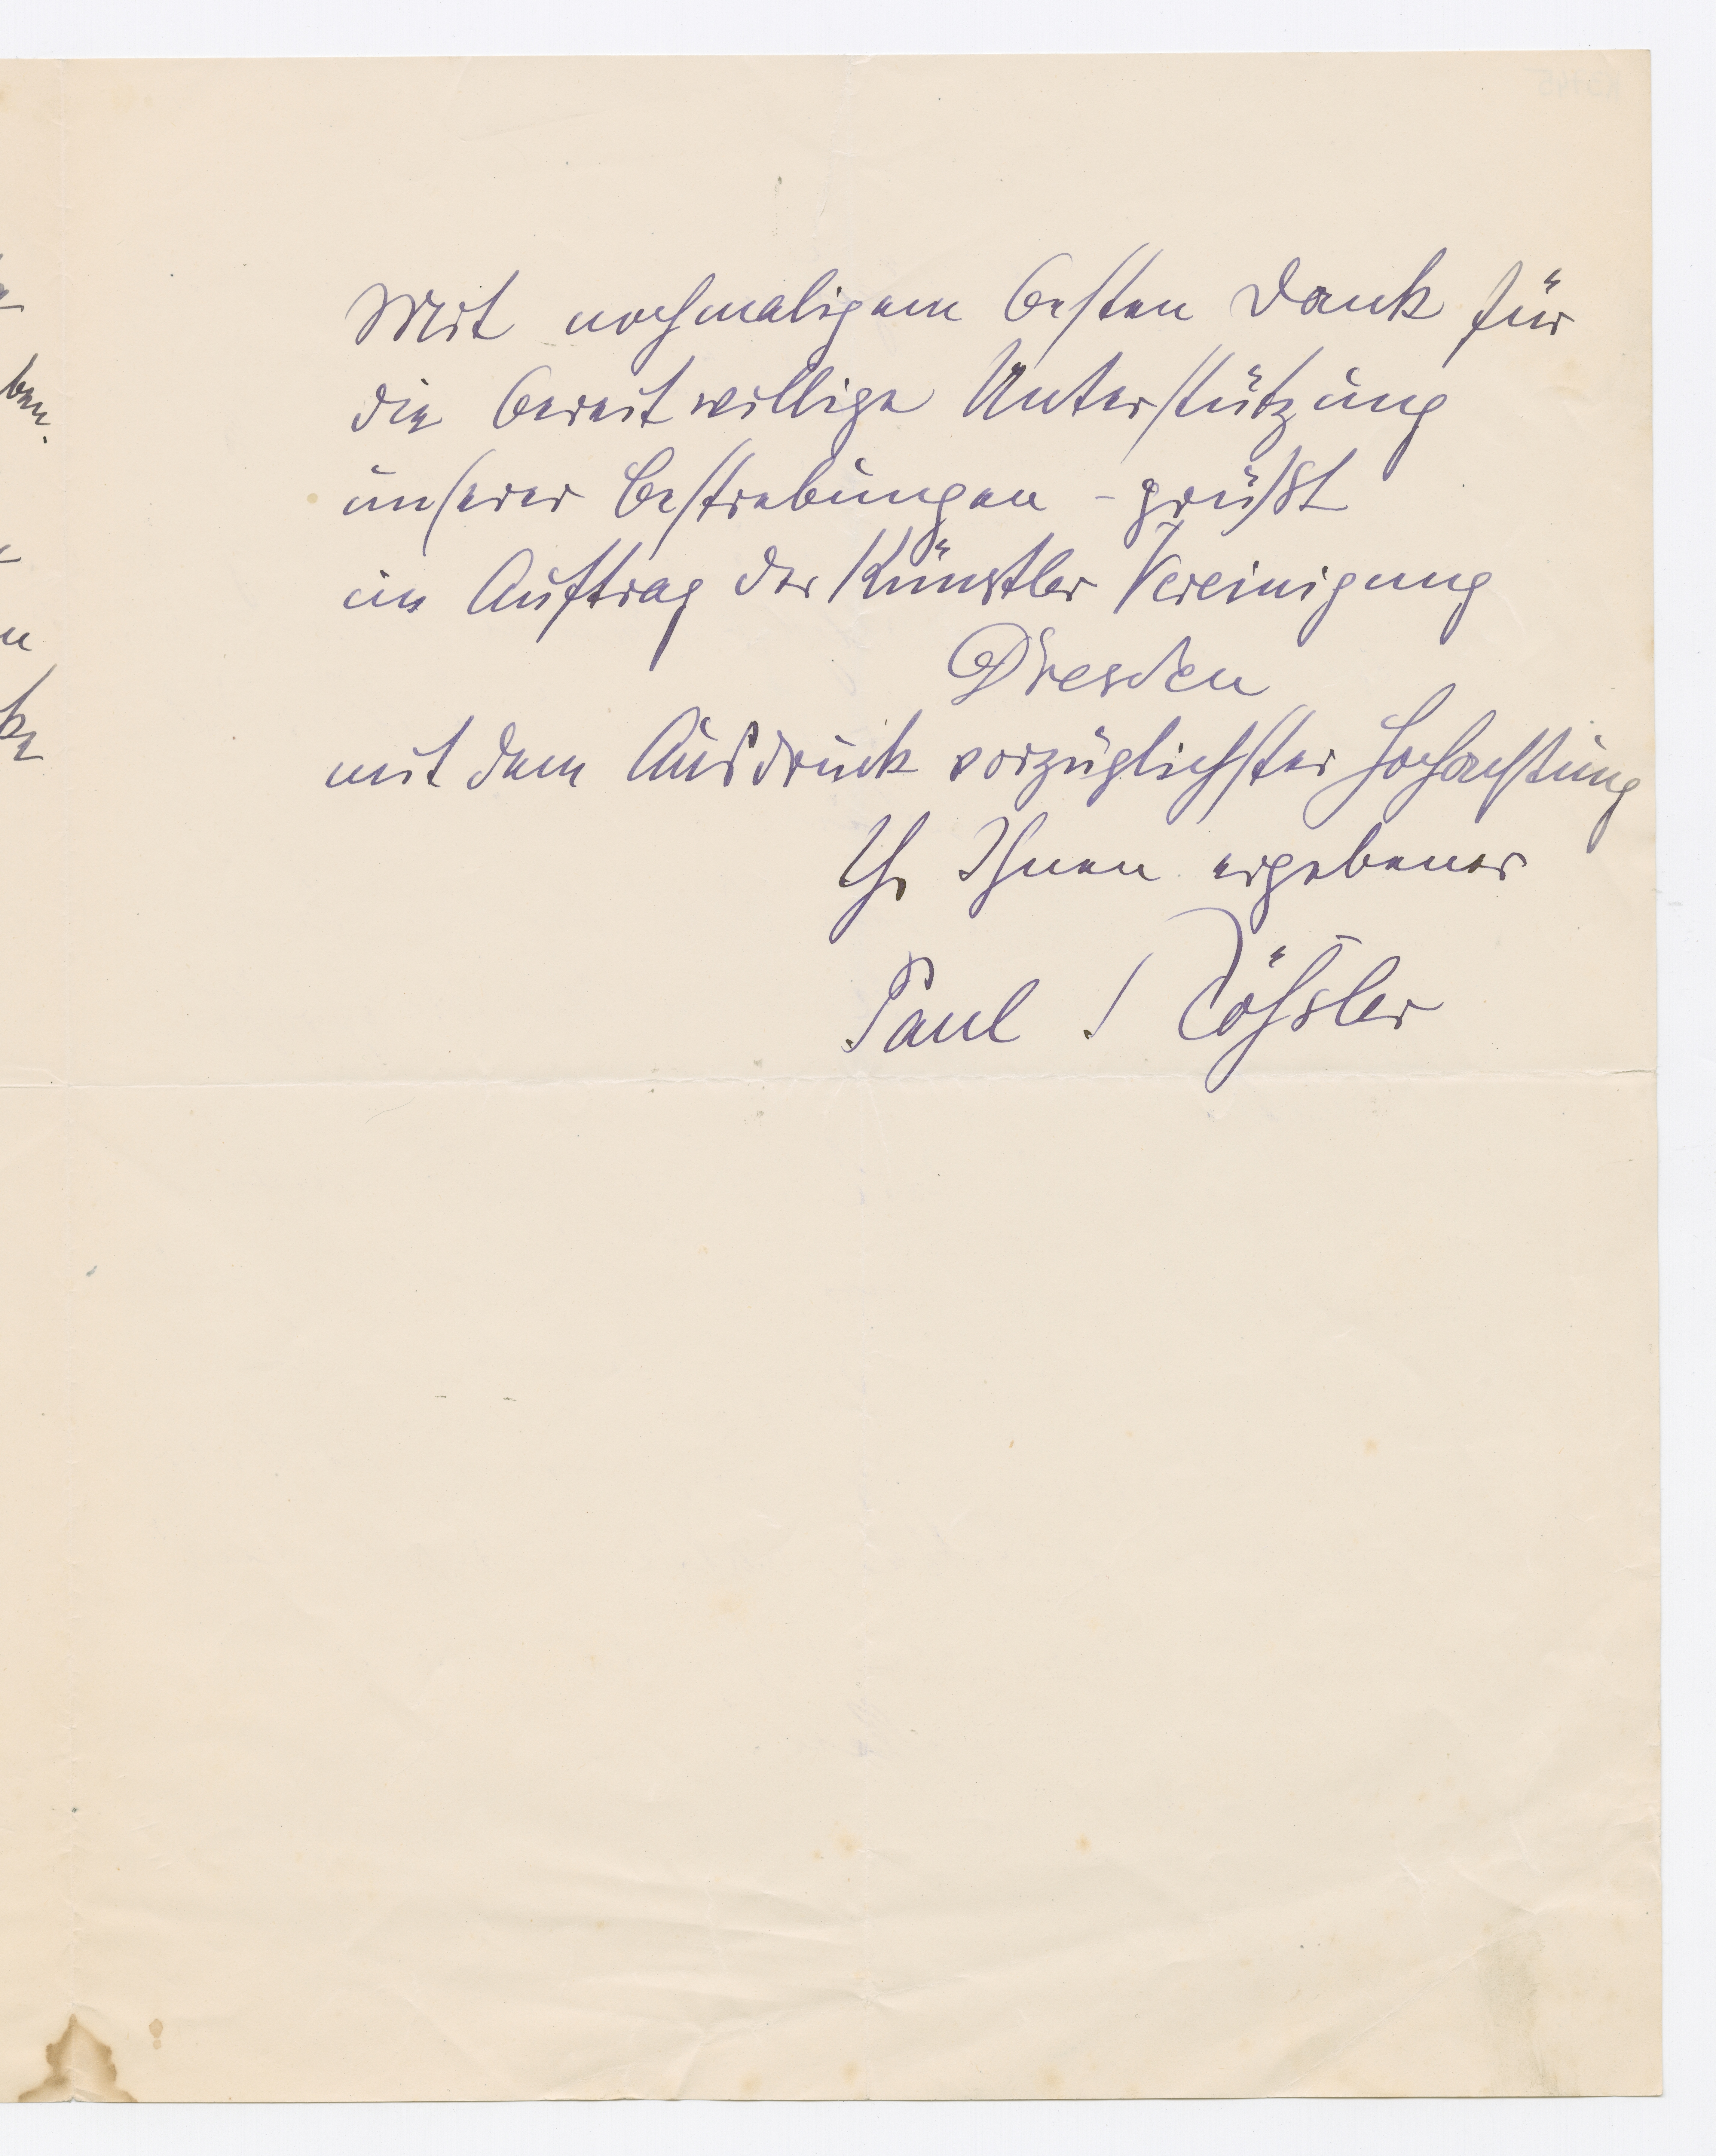 Mit nochmaligem besten Dank für
die bereitwillige Unterstützung
unserer Bestrebungen - grüßt
im Auftrag der Künstler Vereinigung
Dresden
mit dem Ausdruck vorzüglichster Hochachtung
Ihr Ihnen ergebener
Paul Rößler